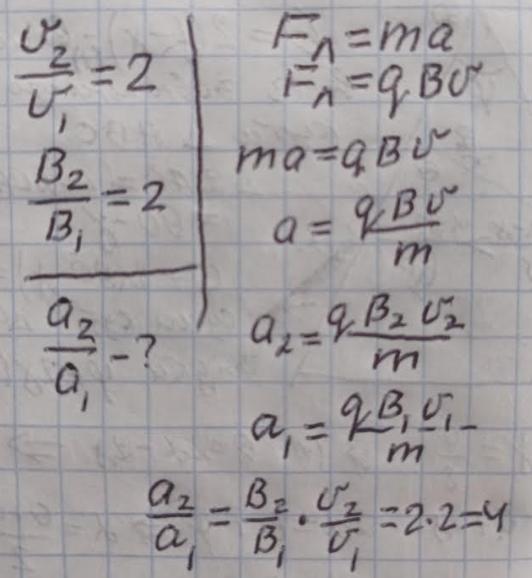 υ₂/υ₁ = 2
B₂/B₁ = 2
a₂/a₁ - ?
Fл = ma
Fл = qBυ
ma = qBυ
a = qBυ/m
a₂ = qB₂υ₂/m
a₁ = qB₁υ₁/m -
a₂/a₁ = B₂/B₁ · υ₂/υ₁ = 2·2=4